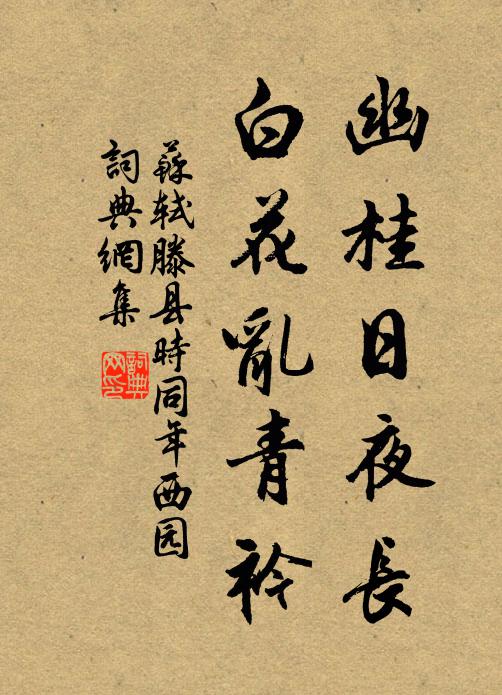 幽桂日夜長
白花亂青衿
蘇轼滕县時同年西园
詞典網集
詞典
网印